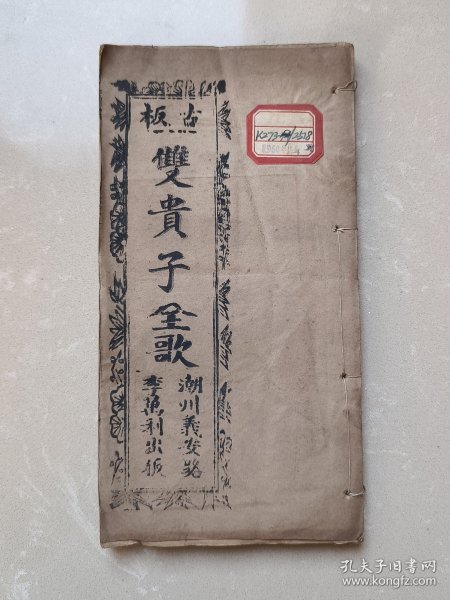 古板
雙貴子全歌
潮州義安路
李萬利出版
K273.4/2518
孔夫子旧书网
www.kongfz.com